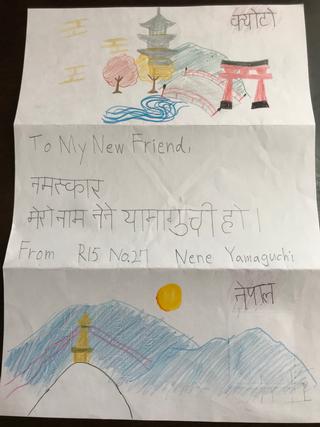 क्योटो
To My New Friend,
नमस्कार
मेरो नाम नेने यामागुची हो ।
From R15 No.27 Nene Yamaguchi
नेपाल